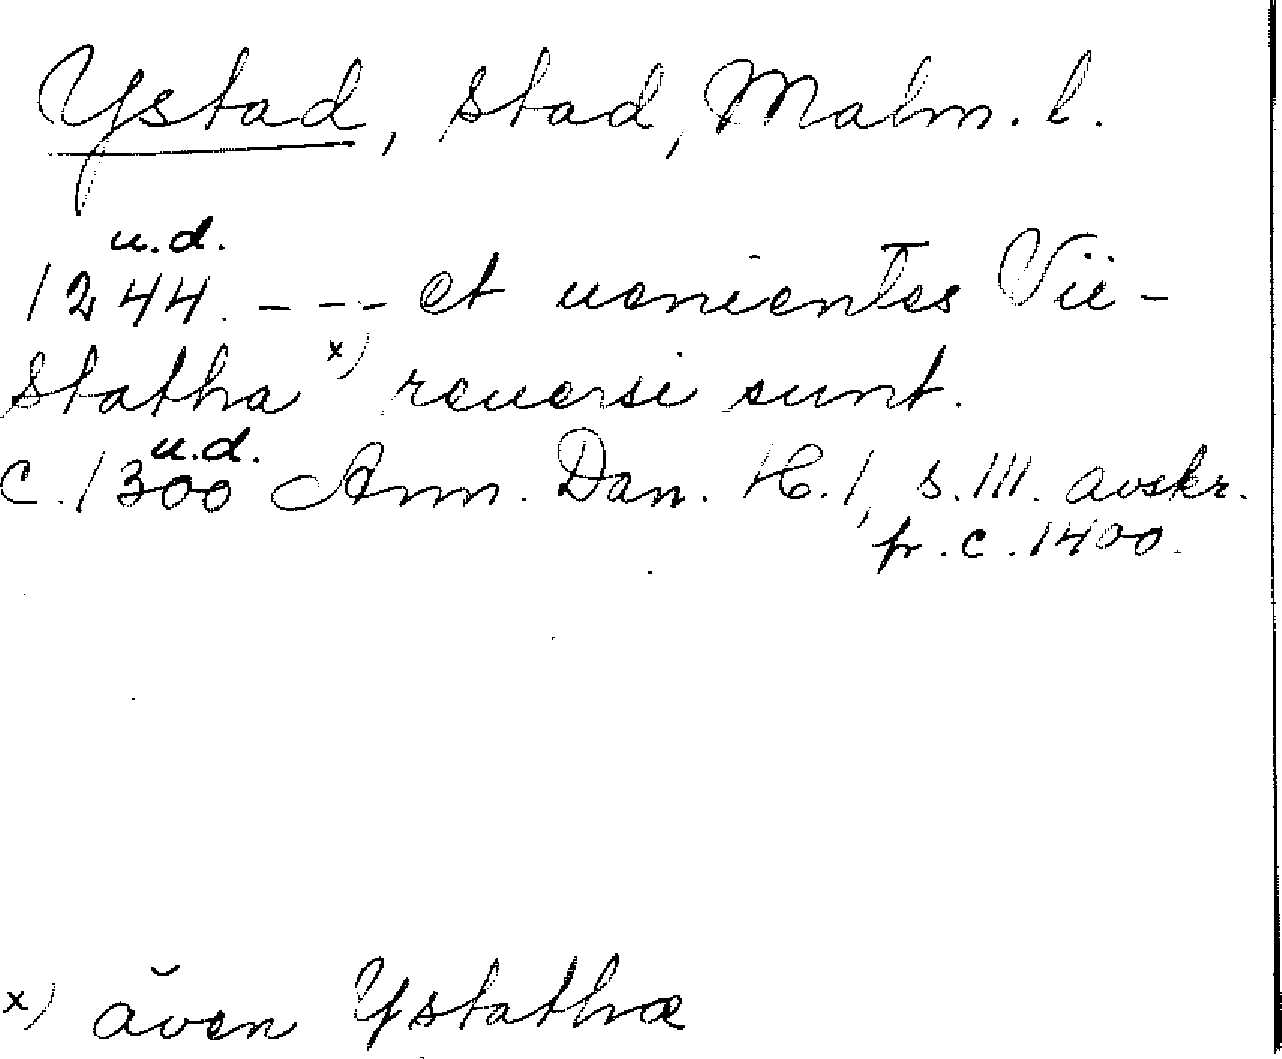 Ystad, stad, Malm. l.
u.d.
1244. --- et uenientes Vii-
statha x) reuersi sunt.
u.d.
C. 1300 Ann. Dan. H. 1, s. 111. avskr.
fr. c. 1400.
x) även Ystathæ